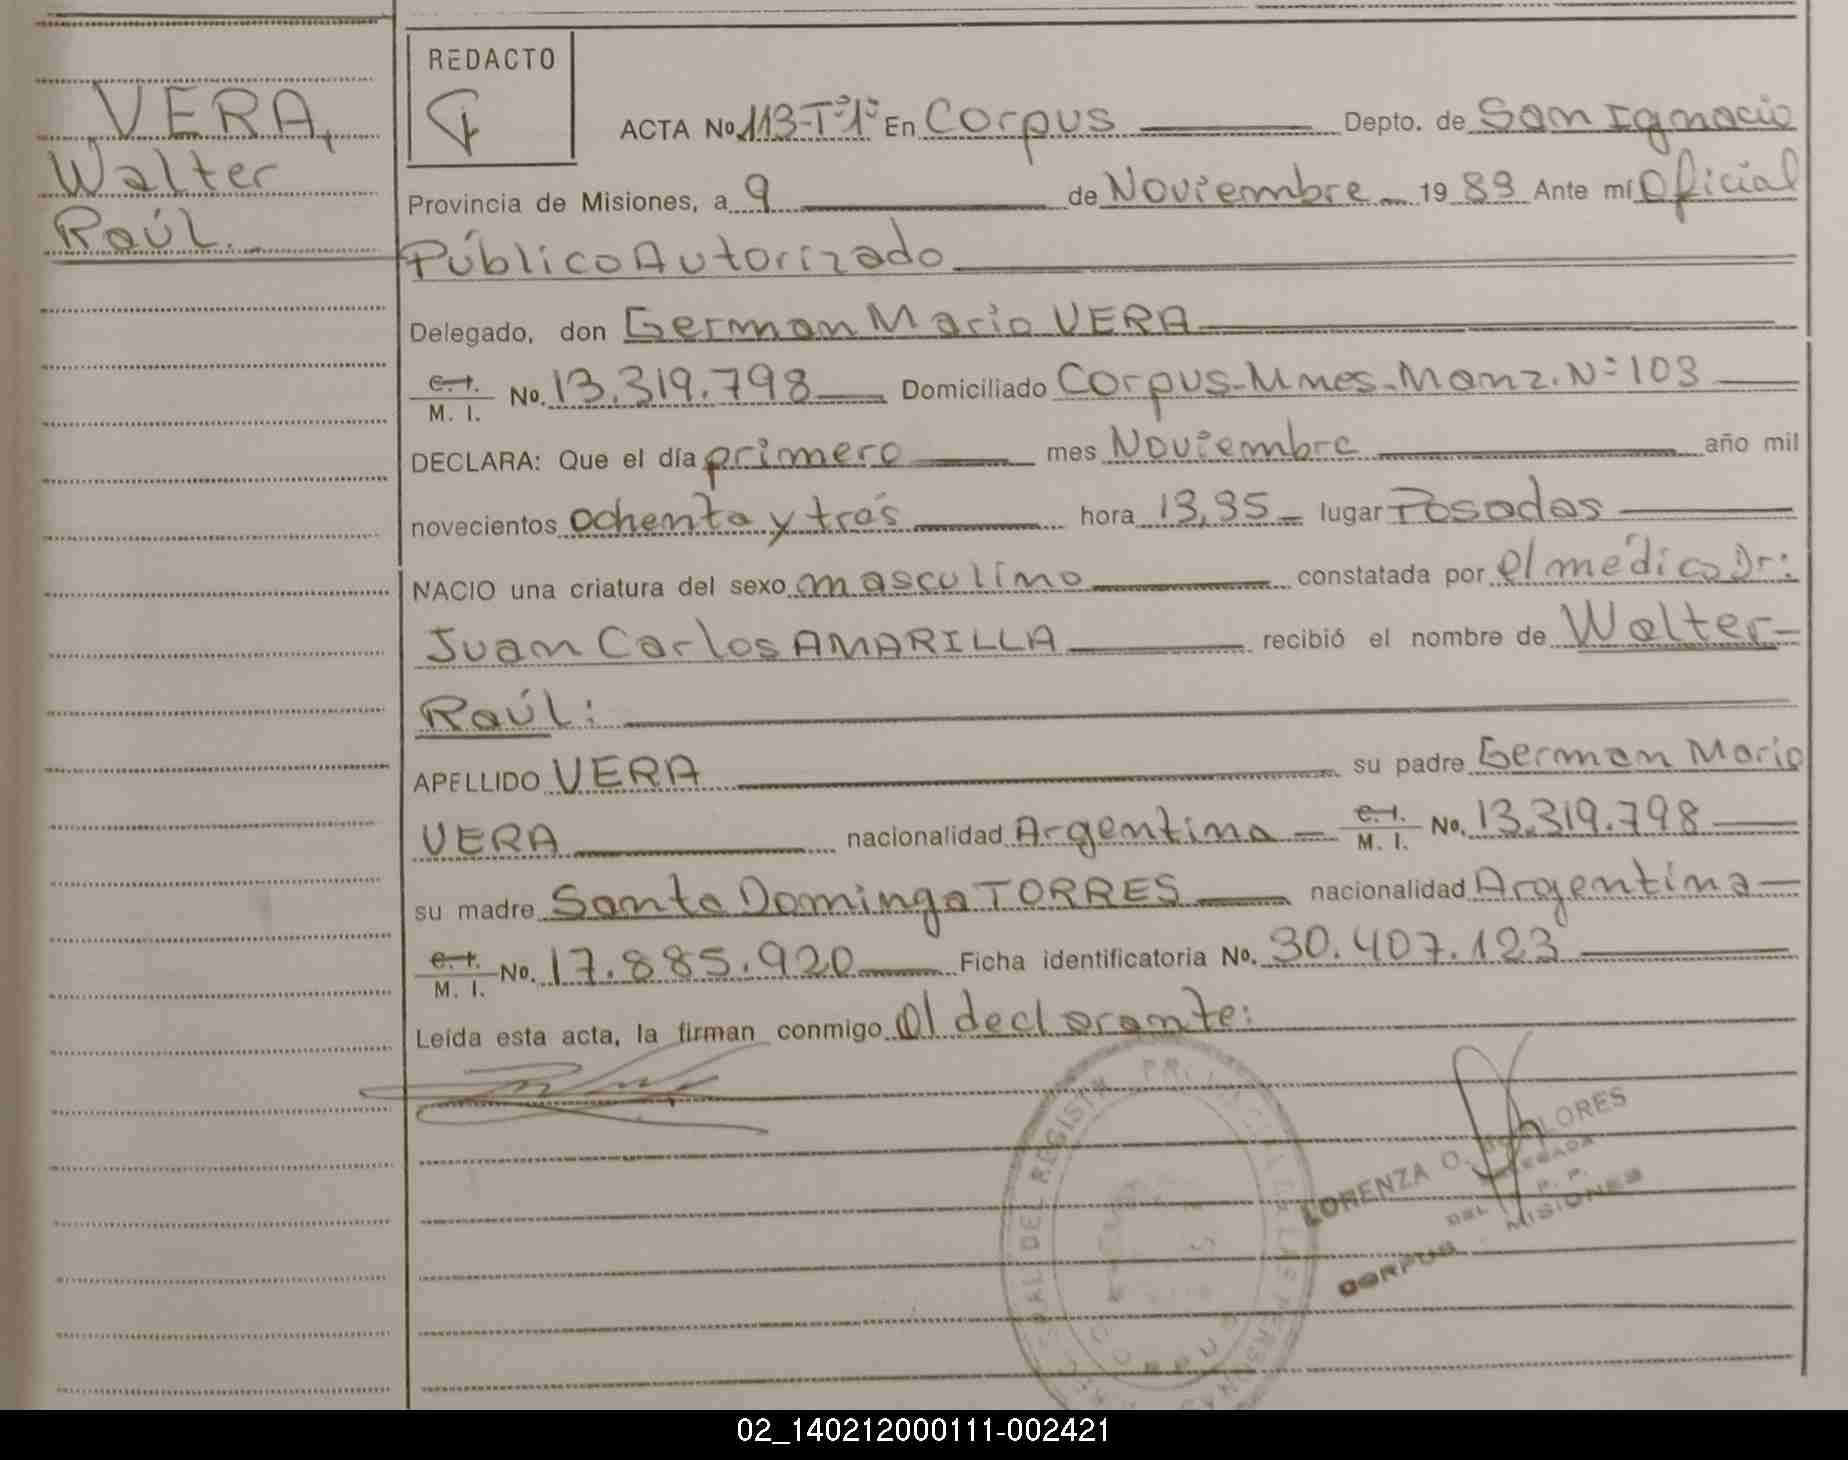 VERA,
Walter
Raúl.
REDACTO
ACTA No. 113-Tº1º En Corpus Depto. de San Ignacio
Provincia de Misiones, a 9 de Noviembre 19 83 Ante mí Oficial
Público Autorizado
Delegado, don German Mario VERA
C. I. / M. I. No. 13.319.798 Domiciliado Corpus-Mnes-Manz. Nº 103
DECLARA: Que el día primero mes Noviembre año mil
novecientos ochenta y trés hora 13,35 lugar Posadas
NACIO una criatura del sexo masculino constatada por el médico Dr:
Juan Carlos AMARILLA recibió el nombre de Walter-
Raúl:
APELLIDO VERA su padre German Mario
VERA nacionalidad Argentina C. I. / M. I. No. 13.319.798
su madre Santa Dominga TORRES nacionalidad Argentina
C. I. / M. I. No. 17.885.920 Ficha identificatoria No. 30.407.123
Leída esta acta, la firman conmigo el declarante:
LORENZA O. LORES
MISIONES
CORPUS
02_140212000111-002421